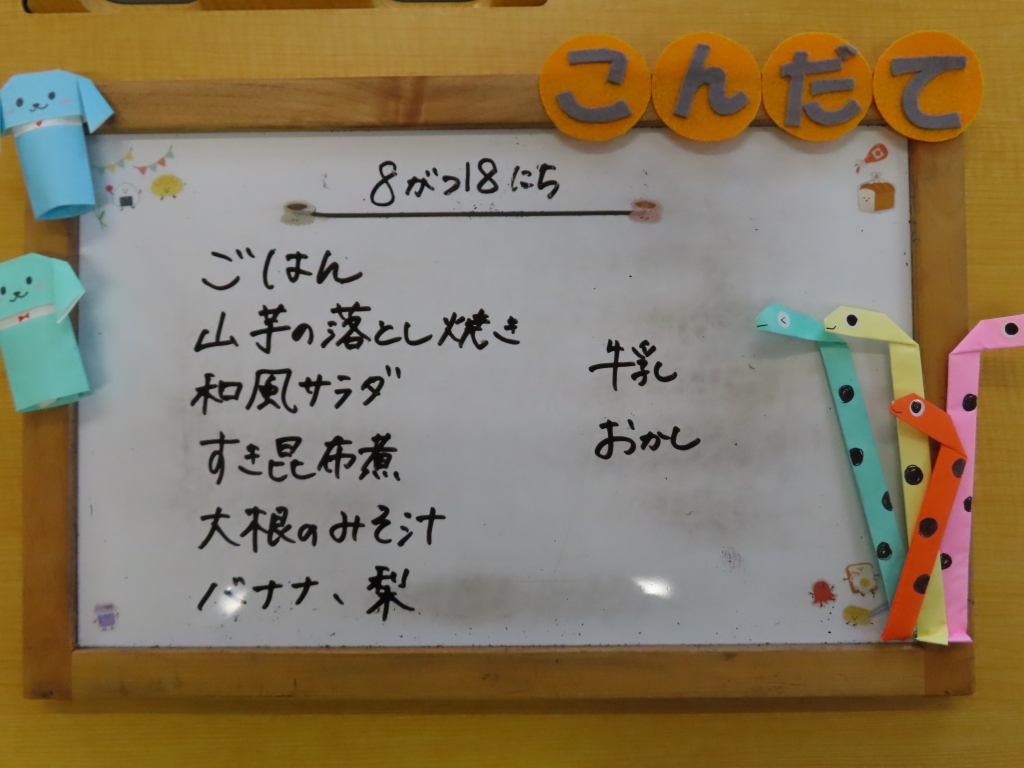 こんだて
8がつ18にち
ごはん
山芋の落とし焼き
和風サラダ
すき昆布煮
大根のみそ汁
バナナ、梨
牛乳
おかし